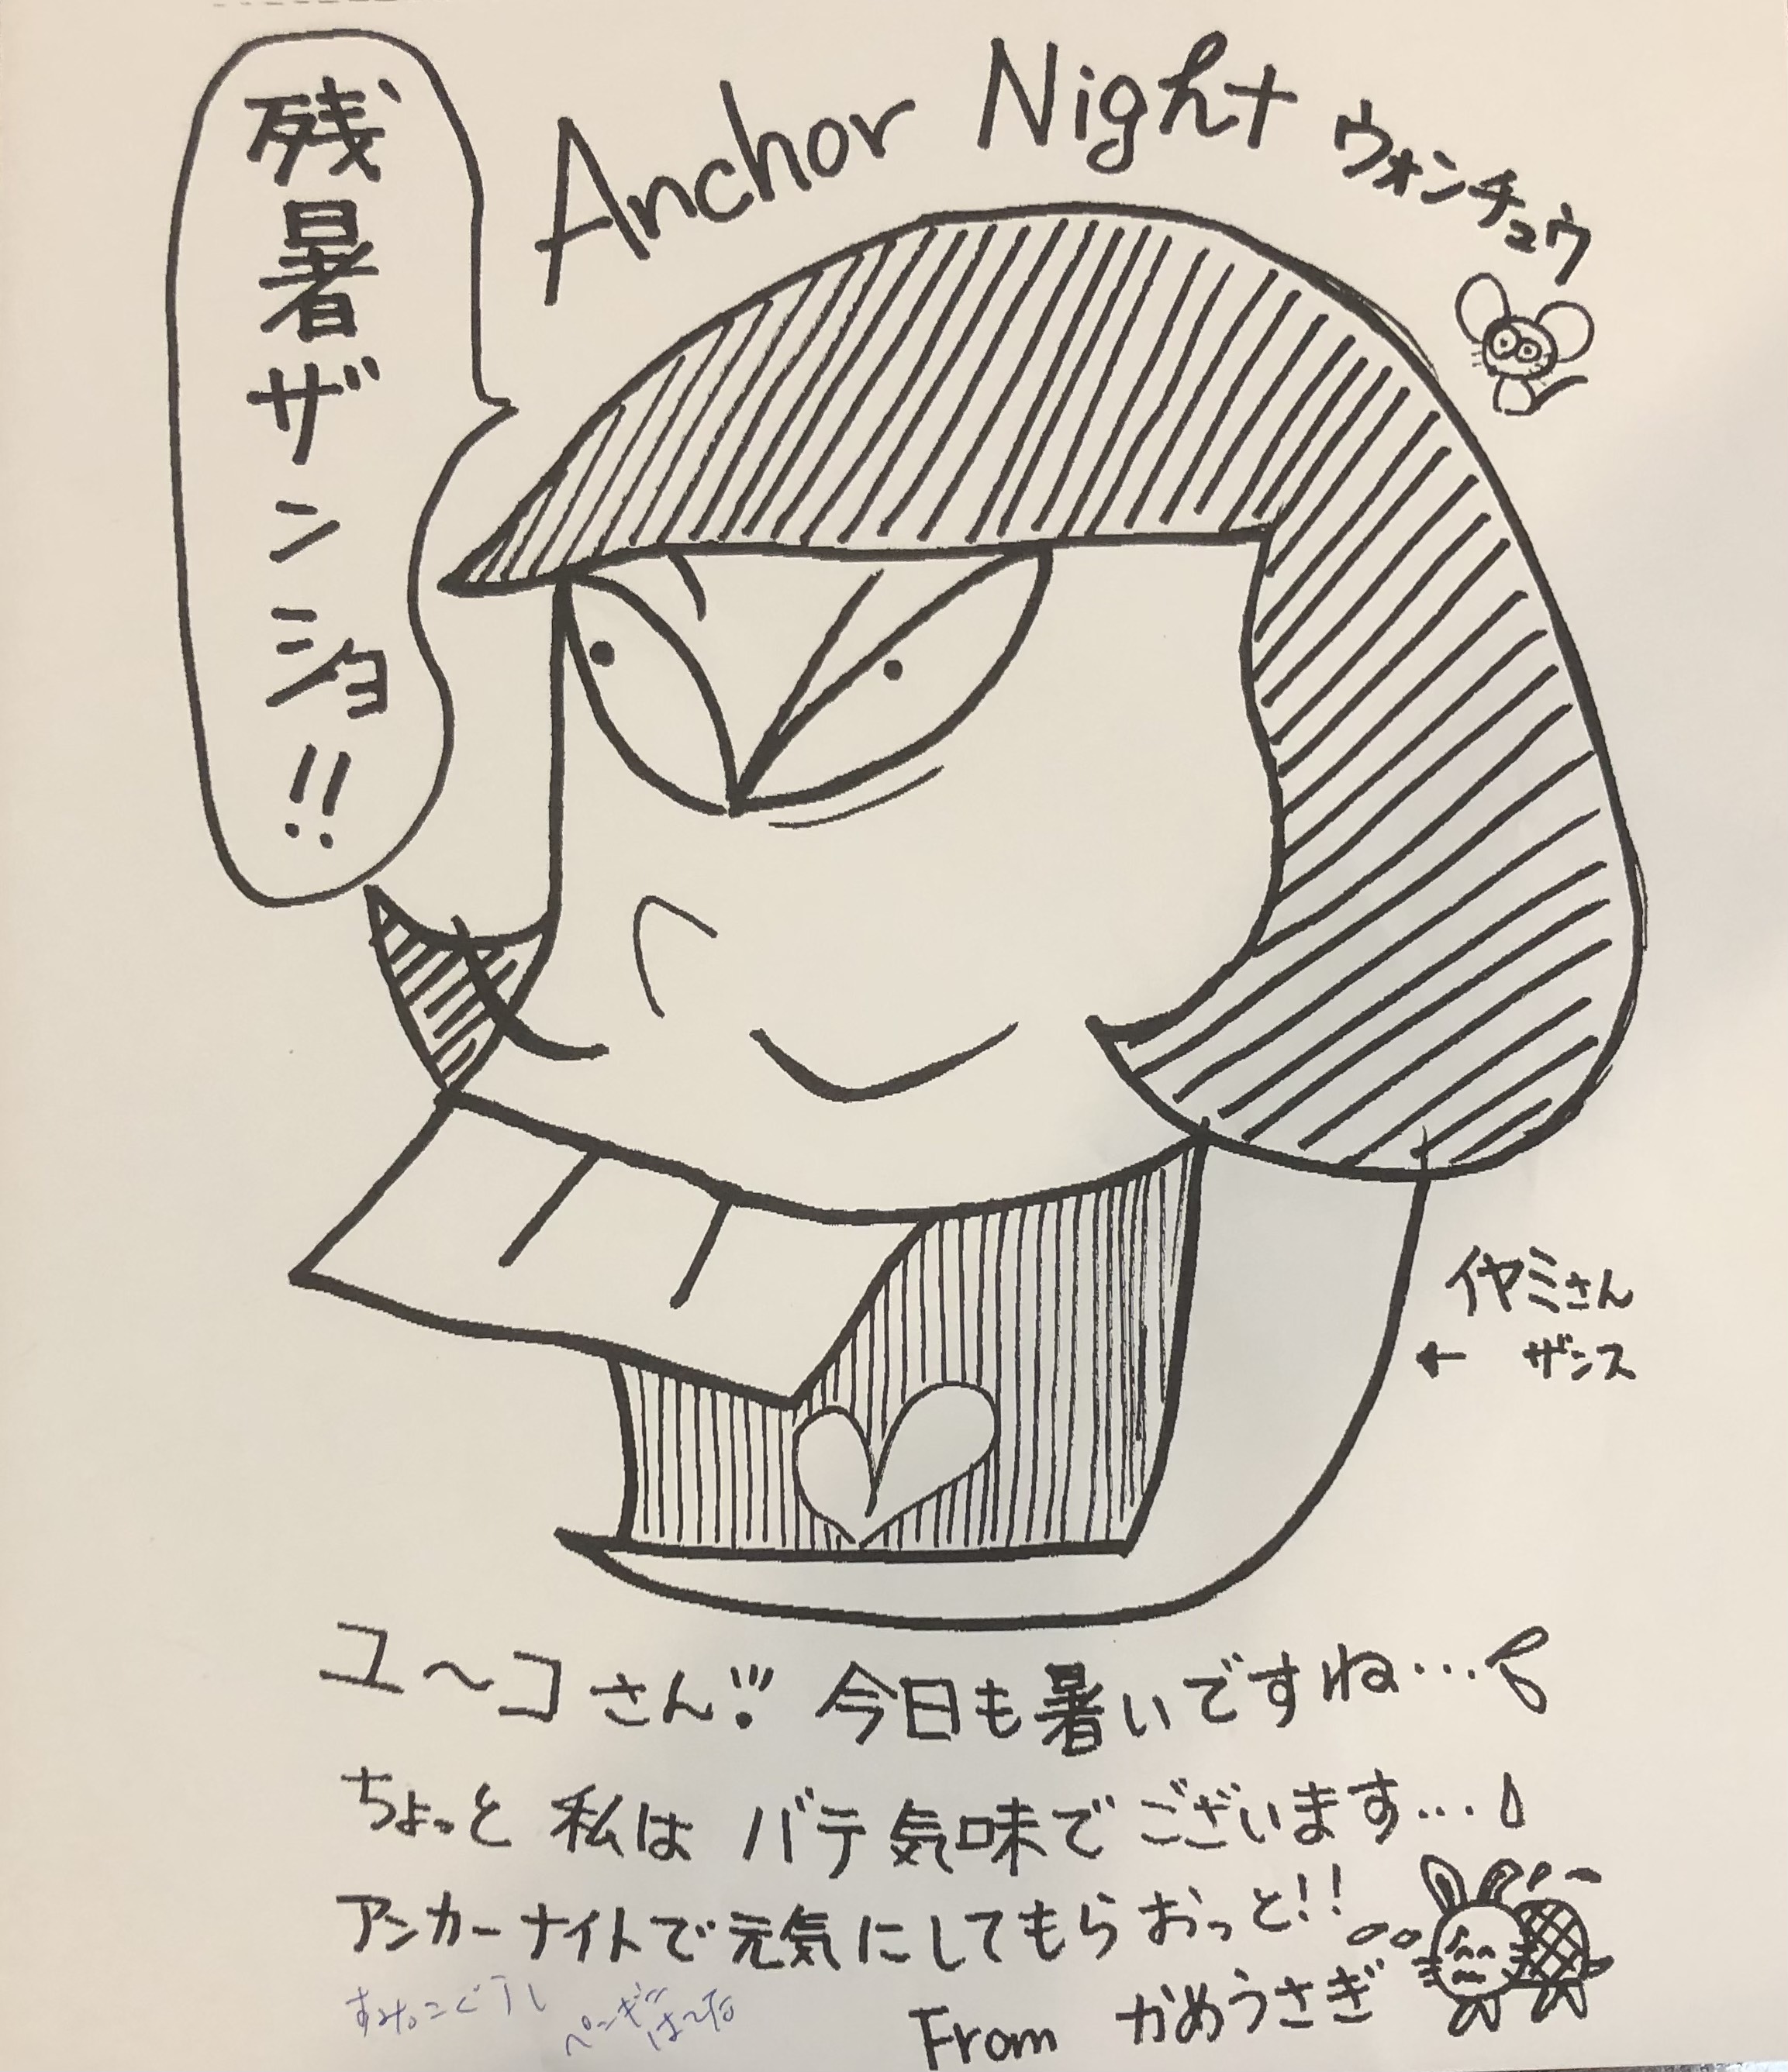 Anchor Night ウォンチュウ
残暑ザンショ!!
イヤミさん
← ザンス
ユ〜コさん!!! 今日も暑いですね…
ちょっと 私は バテ気味で ございます…
アンカーナイトで元気にしてもらおっと!!
From かめうさぎ